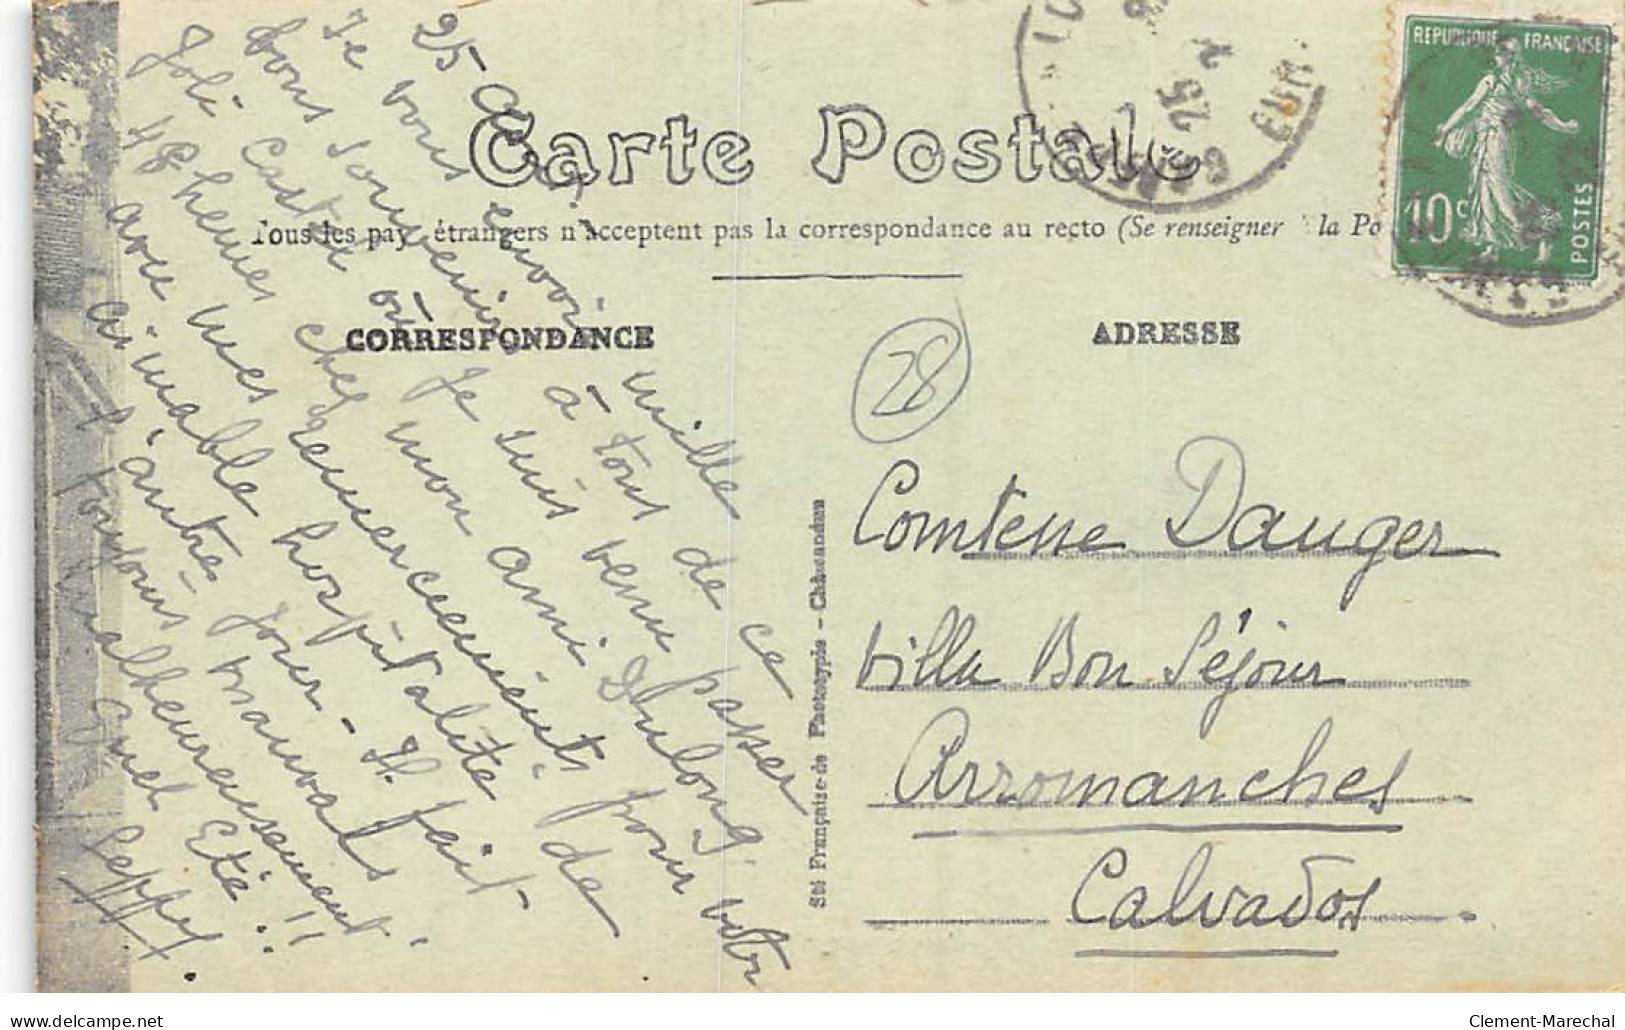 Carte Postale
Tous les pays étrangers n'acceptent pas la correspondance au recto (Se renseigner à la Po
CORRESPONDANCE
ADRESSE
REPUBLIQUE FRANÇAISE
10c
POSTES
GARE
EUR
25
28
25 Août
Je vous envoie mille
bons souvenirs à tous de ce
Joli Castel où Je suis venu passer
48 heures chez mon ami Dulong
avec mes remerciements pour votre
aimable hospitalité de
l'autre jour - Il fait
toujours mauvais
malheureusement.
quel Eté !!
Seppey.
Comtesse Dauger
Villa Bon Séjour
Arromanches
Calvados
Sté Française de Phototypie - Châteaudun
Clement-Marechal